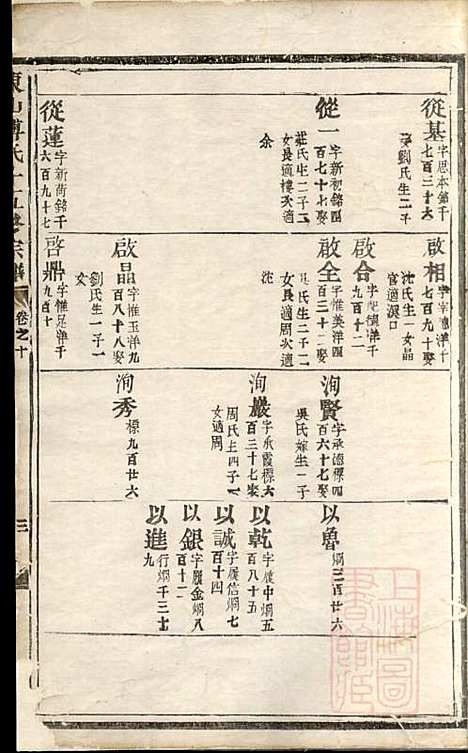 從基
字思本錦千
七百三十六
娶劉氏生二子
從一
字新初銘四
百七十七娶
莊氏生二子二
女長適樓次適
余
從蓮
字新荷銘千
六百九十七
啟相
七百九十娶
沈氏生一女晶
官適溪口
啟合
九百十二
啟全
字惟美洋四
百三十二娶
氏生二子二
女長適周次適
沈
啟晶
字惟玉洋九
百八十八娶
劉氏生一子一
女
啓鼎
字惟足洋千
九百十
洵賢
字承德標四
百六十七娶
吳氏嫁生一子
洵嚴
字承霞標六
百三十七娶
周氏生四子一
女適周
洵秀
標九百廿六
以魯
烱三百廿六
以乾
字履中烱五
百八十五
以誠
字履信烱七
百十四
以銀
字履金烱八
百十二
以進
行烱千三十
九
東山傅氏十五修宗譜
卷之十
三
上海圖書館藏